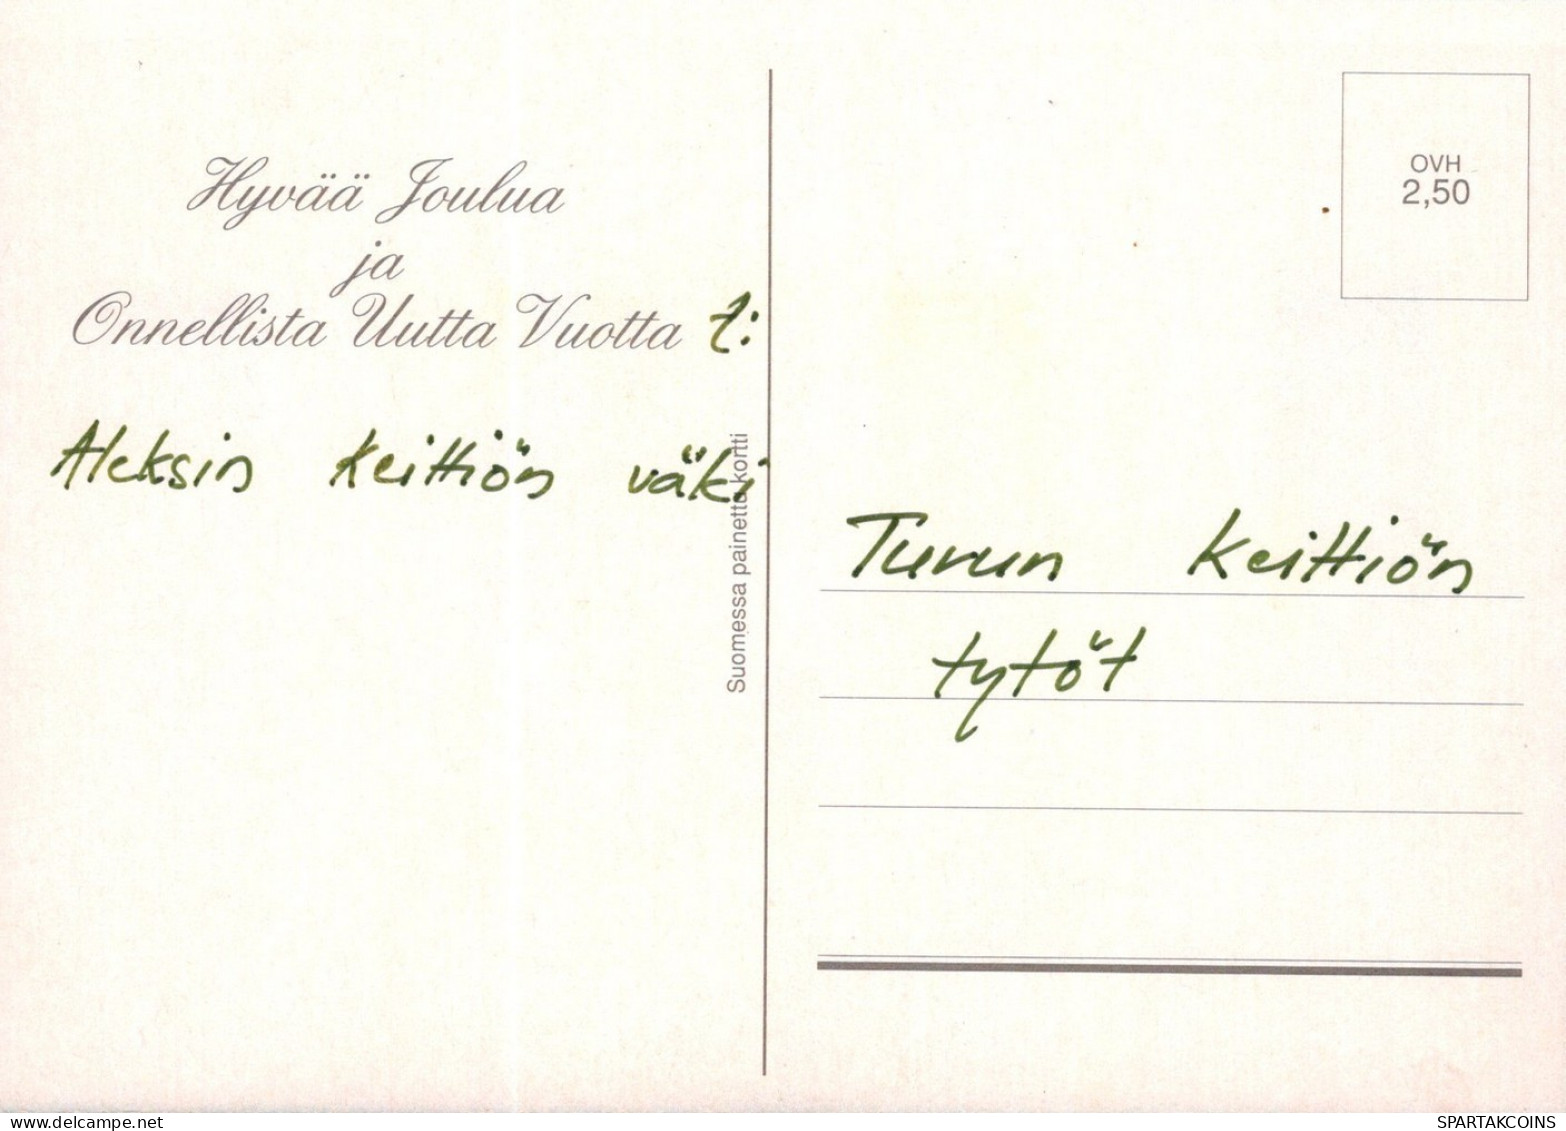 Hyvää Joulua
ja
Onnellista Uutta Vuotta t:
Aleksin keittiön väki
Suomessa painettu kortti
OVH
2,50
Turun keittiön
tytöt
SPARTAKCOINS